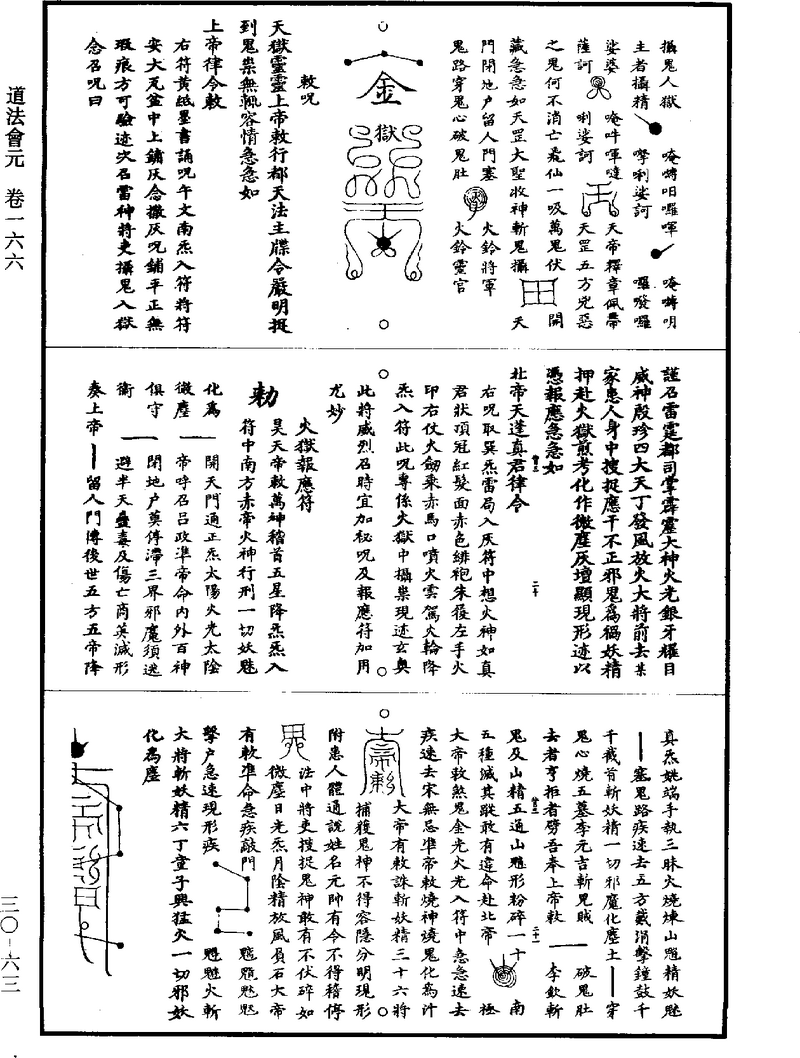 道法會元　卷一六六
三〇—六三
攝鬼入獄　唵㘄呬囉㖶　唵㘄呬
主者攝精　㘑唎娑訶　囉㗶囉
娑婆　唵吽㖶噠　天帝釋章佩帶
薩訶　唎娑訶　天罡五方兇惡
之鬼何不消亡飛仙一吸萬鬼伏　開
藏急急如天罡大聖收神斬鬼攝　天
門閉地户留人門塞　火鈴將軍
鬼路穿鬼心破鬼肚　火鈴靈官
金
獄
敕呪
天獄靈靈上帝敕行都天法主牒令嚴明捉
到鬼祟無輒容情急急如
上帝律令敕
右符黃紙墨書誦呪午文南炁入符將符
安大瓦盆中上鋪灰念撒灰呪鋪平正無
瑕痕方可驗迹次召雷神將吏攝鬼入獄
念召呪曰
謹召雷霆都司掌霹靂大神火光銀牙耀目
威神殷珍四大天丁發風放火大將前去某
家患人身中搜捉應干不正邪鬼爲禍妖精
押赴火獄煎考化作微塵灰壇顯現形迹以
憑報應急急如
北帝天蓬真君律令
右呪取巽炁雷局入灰符中想火神如真
君狀頂冠紅髮面赤色緋袍朱履左手火
印右仗火劍乘赤馬口噴火雲駕火輪降
炁入符此呪專係火獄中攝祟現迹玄奥
此將威烈召時宜加秘呪及報應符加用
尤妙
火獄報應符
昊天帝敕萬神稽首五星降炁炁入
勑
符中南方赤帝火神行刑一切妖魅
化爲　開天門通正炁太陽火光太陰
微塵　帝呼召吕政準帝命内外百神
俱守　閉地户莫停滯三界邪魔須逃
衛　避半天蠱毒及傷亡商英滅形
奏上帝　留人門傳後世五方五帝降
真炁姚端手執三昧火燒煉山魈精妖魅
塞鬼路疾速去五方戴消擊鐘鼓千
千截首斬妖精一切邪魔化塵土　穿
鬼心燒五墓李元吉斬兇賊　破鬼肚
去者亨拒者劈吾奉上帝敕　李欽斬
鬼及山精五通山魈形粉碎一十　南
五種滅其蹤敢有違命赴北帝　極
大帝敕煞鬼金光火光入符中急急速去
疾速去宋無忌準帝敕燒神燒鬼化爲汁
大帝有敕誅斬妖精三十六將
捕獲鬼神不得容隱分明現形
附患人體通説姓名元帥有令不得稽停
法中將吏搜捉鬼神敢有不伏碎如
微塵日光炁月陰精放風負石大帝
有敕準命急疾敲門　魈魈魅魅
擊户急速現形疾　魈魈火斬
大將斬妖精六丁童子興猛火一切邪妖
化爲塵